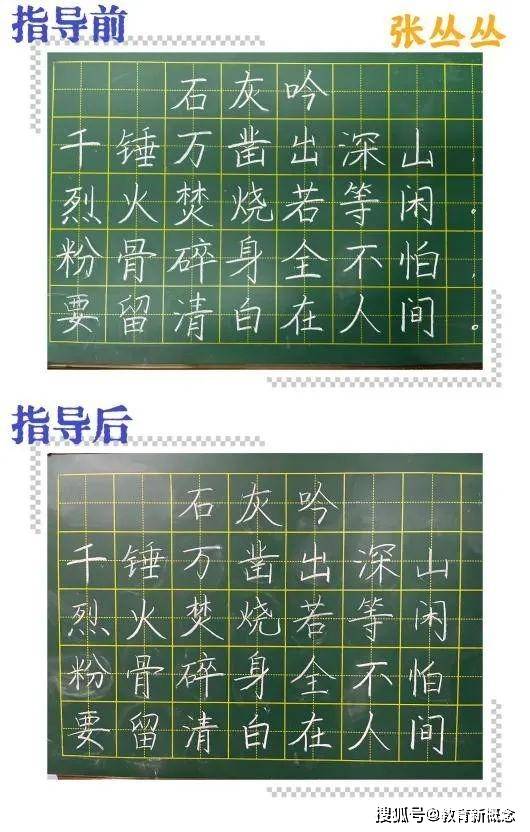 指导前
张丛丛
石灰吟
千锤万凿出深山，
烈火焚烧若等闲。
粉骨碎身全不怕，
要留清白在人间。
指导后
石灰吟
千锤万凿出深山
烈火焚烧若等闲
粉骨碎身全不怕
要留清白在人间
搜狐号@教育新概念